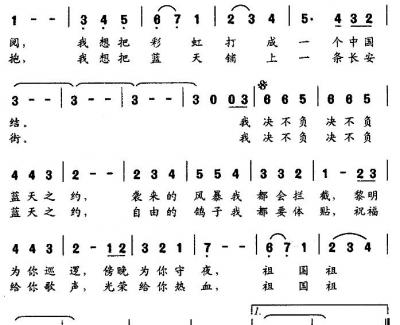 1 - - | 3 4 5 | 6 7 1 | 2 3 4 | 5· 4 3 2
阅， 我想把 彩 虹 打 成 一 个中国
抱， 我想把 蓝 天 铺 上 一 条长安
3 - - | 3 - - | 3 - - | 3 0 0 3 | 6 6 5 | 6 6 5
结。 我 决不负 决不负
街。 我 决不负 决不负
4 4 3 | 2 - - | 2 3 4 | 5 5 4 | 3 3 1 | 1 - 2 3
蓝天之 约， 袭来的 风暴我 都会拦 截， 黎明
蓝天之 约， 自由的 鸽子我 都要体 贴， 祝福
4 4 3 | 2 - 1 2 | 3 2 1 | 2 2 3 | 7 - - | 6 7 1 | 2 3 4
为你巡 逻， 傍晚 为你守 夜， 祖 国 祖
给你歌 声， 光荣 给你热 血， 祖 国 祖
1.